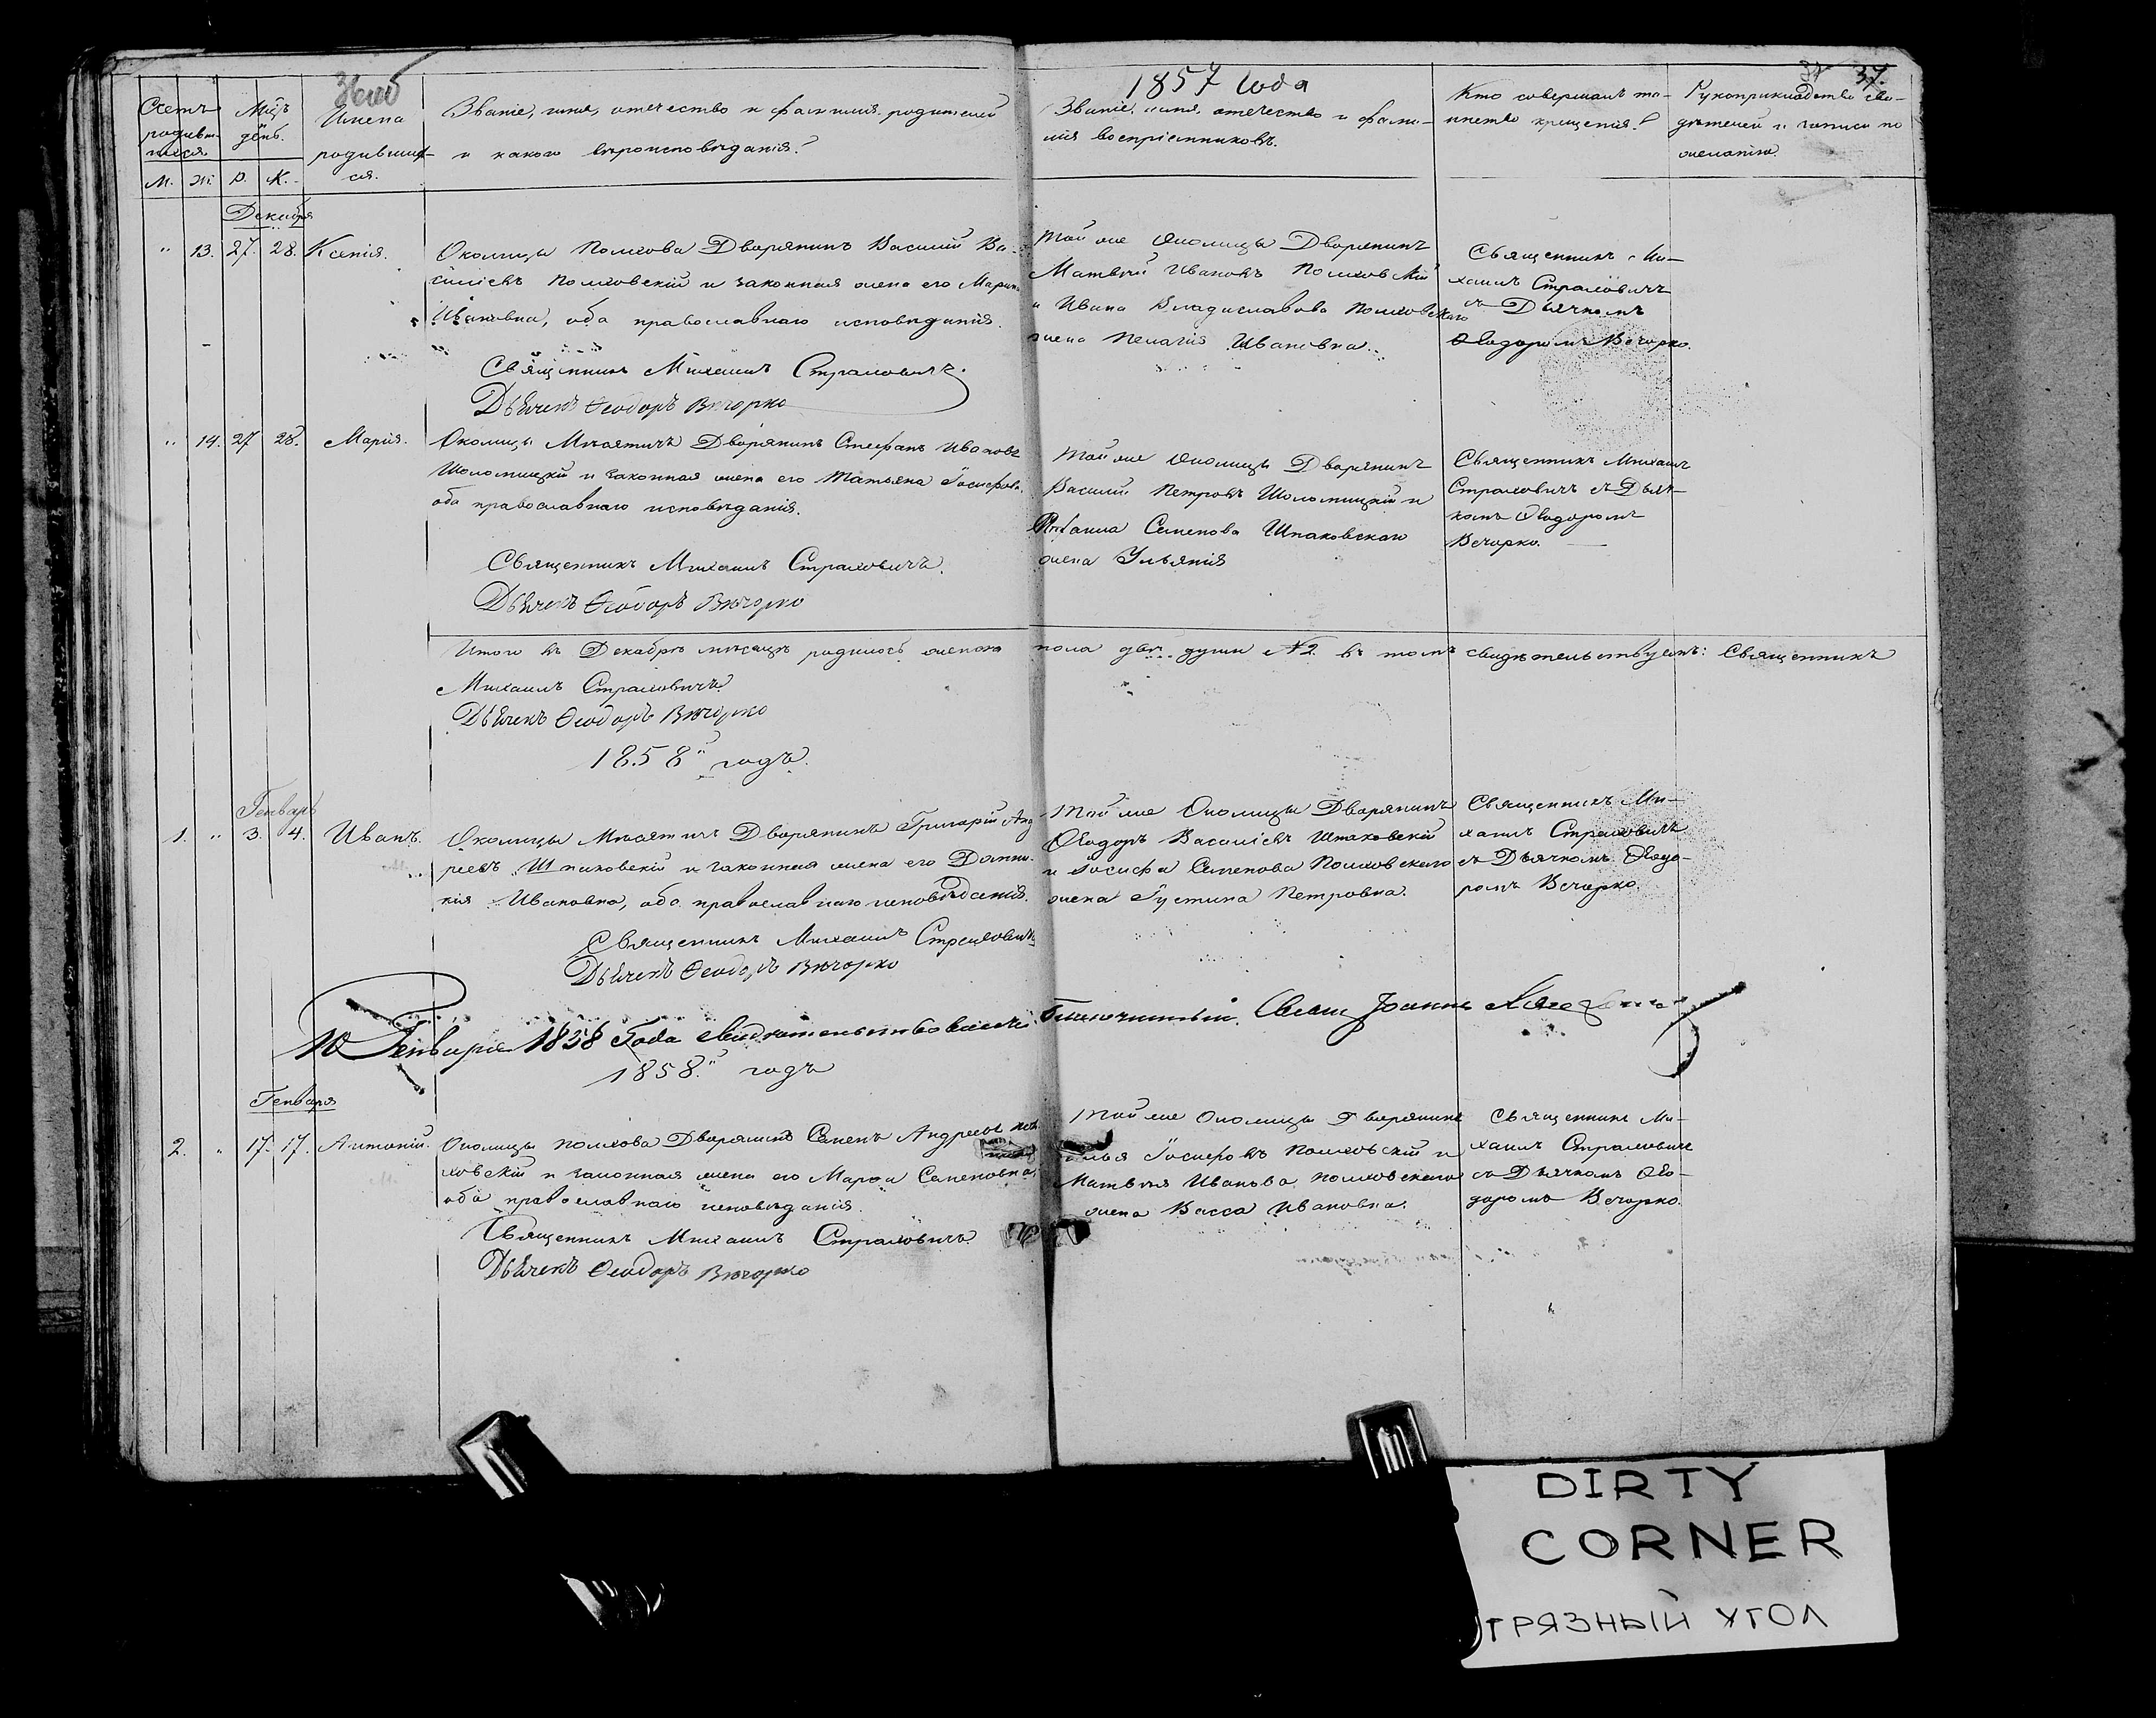 1857 года
37.
Счетъ родив- шихся
Мѣц. и день.
Имена родивших- ся.
Званіе, имя, отечество и фамилія родителей
и какого вѣроисповѣданія?
Званіе, имя, отечество и фами-
лія воспріемниковъ.
Кто совершалъ та-
инство крещенія?
Рукоприкладство сви-
дѣтелей и записи по
желанію.
М. Ж. Р. К.
Декабря
" 13. 27. 28. Ксенія.
Околицы Полхова Дворянинъ Василій Ва-
силіевъ Полховскій и законная жена его Марина
Ивановна, оба православнаго исповѣданія.
Священникъ Михаилъ Страховичъ.
Дьячекъ Ѳеодоръ Вечорко
Той же Околицы Дворянинъ
Матвѣй Ивановъ Полховскій
и Ивана Владиславова Полховскаго
жена Пелагія Ивановна.
Священникъ Ми-
хаилъ Страховичъ
съ Дьячкомъ
Ѳеодоромъ Вечорко.
" 14. 27 28. Марія.
Околицы Мѣсятичъ Дворянинъ Стефанъ Ивановъ
Шоломицкій и законная жена его Татьяна Іосифова,
оба православнаго исповѣданія.
Священникъ Михаилъ Страховичъ.
Дьячекъ Ѳеодоръ Вечорко
Той же Околицы Дворянинъ
Василій Петровъ Шоломицкій и
Семенова Шпаковскаго
жена Ульянія
Священникъ Михаилъ
Страховичъ съ Дьяч-
комъ Ѳеодоромъ
Вечорко.
Итого въ Декабрѣ мѣсяцѣ родилось женскаго пола двѣ души №2 въ томъ свидѣтельствуемъ: Священникъ
Михаилъ Страховичъ
Дьячекъ Ѳеодоръ Вечорко
1858й годъ.
Генварь
1. " 3. 4. Иванъ.
Околицы Мѣсятичъ Дворянинъ Григорій Анд
реевъ Шпаковскій и законная жена его Домни-
кія Ивановна, оба православнаго исповѣданія.
Священникъ Михаилъ Страховичъ
Дьячекъ Ѳеодоръ Вечорко
Той же Околицы Дворянинъ
Ѳеодоръ Василіевъ Шпаковскій
и Іосифа Семенова Полховскаго
жена Густина Петровна.
Священникъ Ми-
хаилъ Страховичъ
съ Дьячкомъ Ѳеодо-
ромъ Вечорко.
10 Генваря 1858 Года свидѣтельствовалъ Благочинный Свящ Іоаннъ
1858.й годъ
Генваря
2. " 17. 17. Антоній.
Околицы Полхова Дворянинъ Семенъ Андреевъ Пол
ховскій и законная жена его Марѳа Семеновна,
оба православнаго исповѣданія.
Священникъ Михаилъ Страховичъ
Дьячекъ Ѳеодоръ Вечорко
Той же Околицы Дворянинъ
Илья Іосифовъ Полховскій и
Матвѣя Иванова Полховскаго
жена Васса Ивановна.
Священникъ Ми-
хаилъ Страховичъ
съ Дьячкомъ Ѳео-
доромъ Вечорко.
DIRTY
CORNER
ГРЯЗНЫЙ УГОЛ